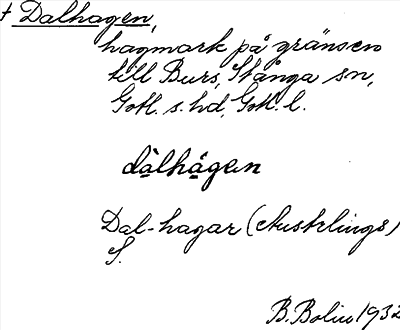 † Dalhagen,
hagmark på gränsen
till Burs, Stånga sn,
Gotl. s. hd, Gotl. l.
dàlhágen
Dal-hagar (Austrlings)
S.
B. Bolin 1932